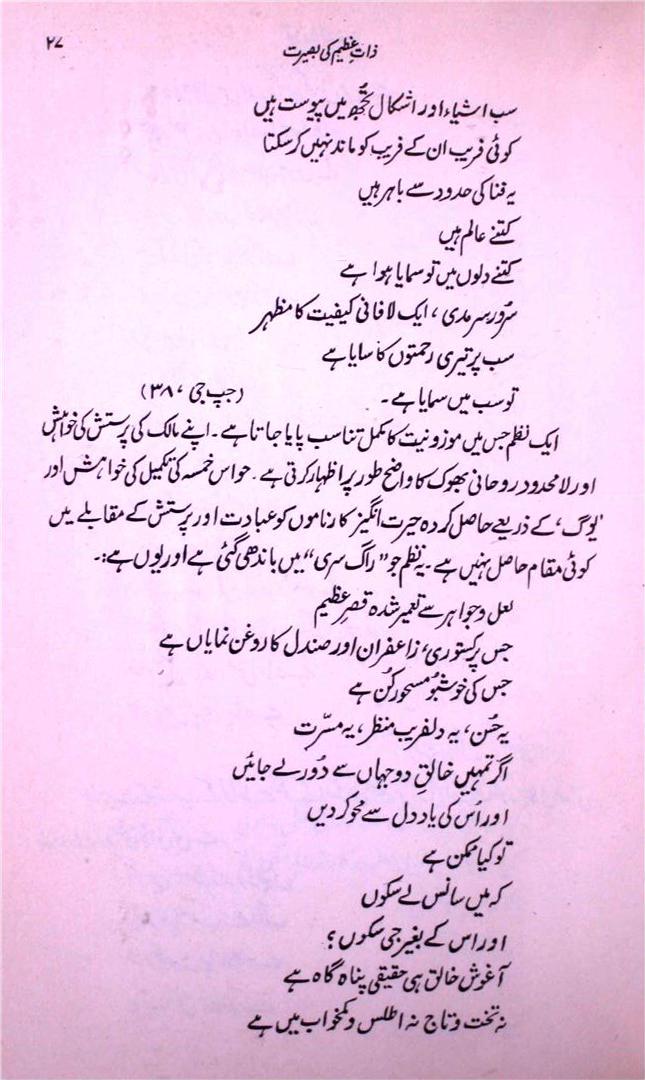 ذاتِ عظیم کی بصیرت
۲۷
سب اشیاء اور اشکال تجھ میں پیوست ہیں
کوئی فریب ان کے فریب کو ماند نہیں کر سکتا
یہ فنا کی حدود سے باہر ہیں
کتنے عالم ہیں
کتنے دلوں میں تو سمایا ہوا ہے
سُرورِ سرمدی، ایک لافانی کیفیت کا مظہر
سب پر تیری رحمتوں کا سایا ہے
تو سب میں سمایا ہے۔ (جپ جی، ۳۸)
ایک نظم جس میں موزونیت کا مکمل تناسب پایا جاتا ہے۔ اپنے مالک کی پرستش کی خواہش
اور لامحدود روحانی بھوک کا واضح طور پر اظہار کرتی ہے۔ حواس خمسہ کی تکمیل کی خواہش اور
’یوگ‘ کے ذریعے حاصل کردہ حیرت انگیز کارناموں کو عبادت اور پرستش کے مقابلے میں
کوئی مقام حاصل نہیں ہے۔ یہ نظم جو ”راگ سری“ میں باندھی گئی ہے اور یوں ہے:۔
لعل و جواہر سے تعمیر شدہ قصرِ عظیم
جس پر کستوری، زاعفران اور صندل کا روغن نمایاں ہے
جس کی خوشبُو مسحور کُن ہے
یہ حُسن، یہ دلفریب منظر، یہ مسرّت
اگر تمہیں خالقِ دو جہاں سے دُور لے جائیں
اور اُس کی یاد دل سے محو کر دیں
تو کیا ممکن ہے
کہ میں سانس لے سکوں
اور اس کے بغیر جی سکوں؟
آغوش خالق ہی حقیقی پناہ گاہ ہے
نہ تخت و تاج نہ اطلس و کمخواب میں ہے